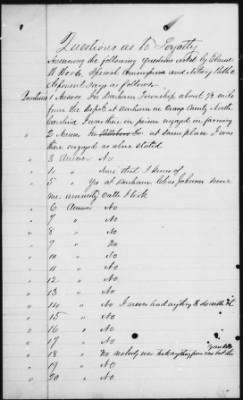 Questions as to Loyalty
Answering the following questions asked by
Special Commissioner and Notary Public
Deponent says as follows.
Questions 1 Answer In Durham Township about 1/2 mile
from the Depot at Durham in Orange County North
Carolina I was there in person engaged in farming
2 Answer In Hillsboro In at same place I was
there engaged as above stated
" 3 Answer No
" 4 " None that I know of
" 5 " Yes at Durham Johnson
me amnesty oath I took
" 6 Answer No
" 7 " No
" 8 " No
" 9 " No
" 10 " No
" 11 " No
" 12 " No
" 13 " No
" 14 " No I never had anything to do with it
" 15 " No
" 16 " No
" 17 " No
" 18 " No nobody ever took anything from me but the Yankees
" 19 " No
" 20 " No